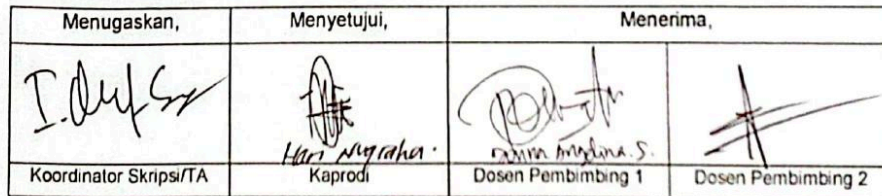 Menugaskan, Menyetujui, Menerima,
Hari Nugraha.
Angelina. S.
Koordinator Skripsi/TA Kaprodi Dosen Pembimbing 1 Dosen Pembimbing 2